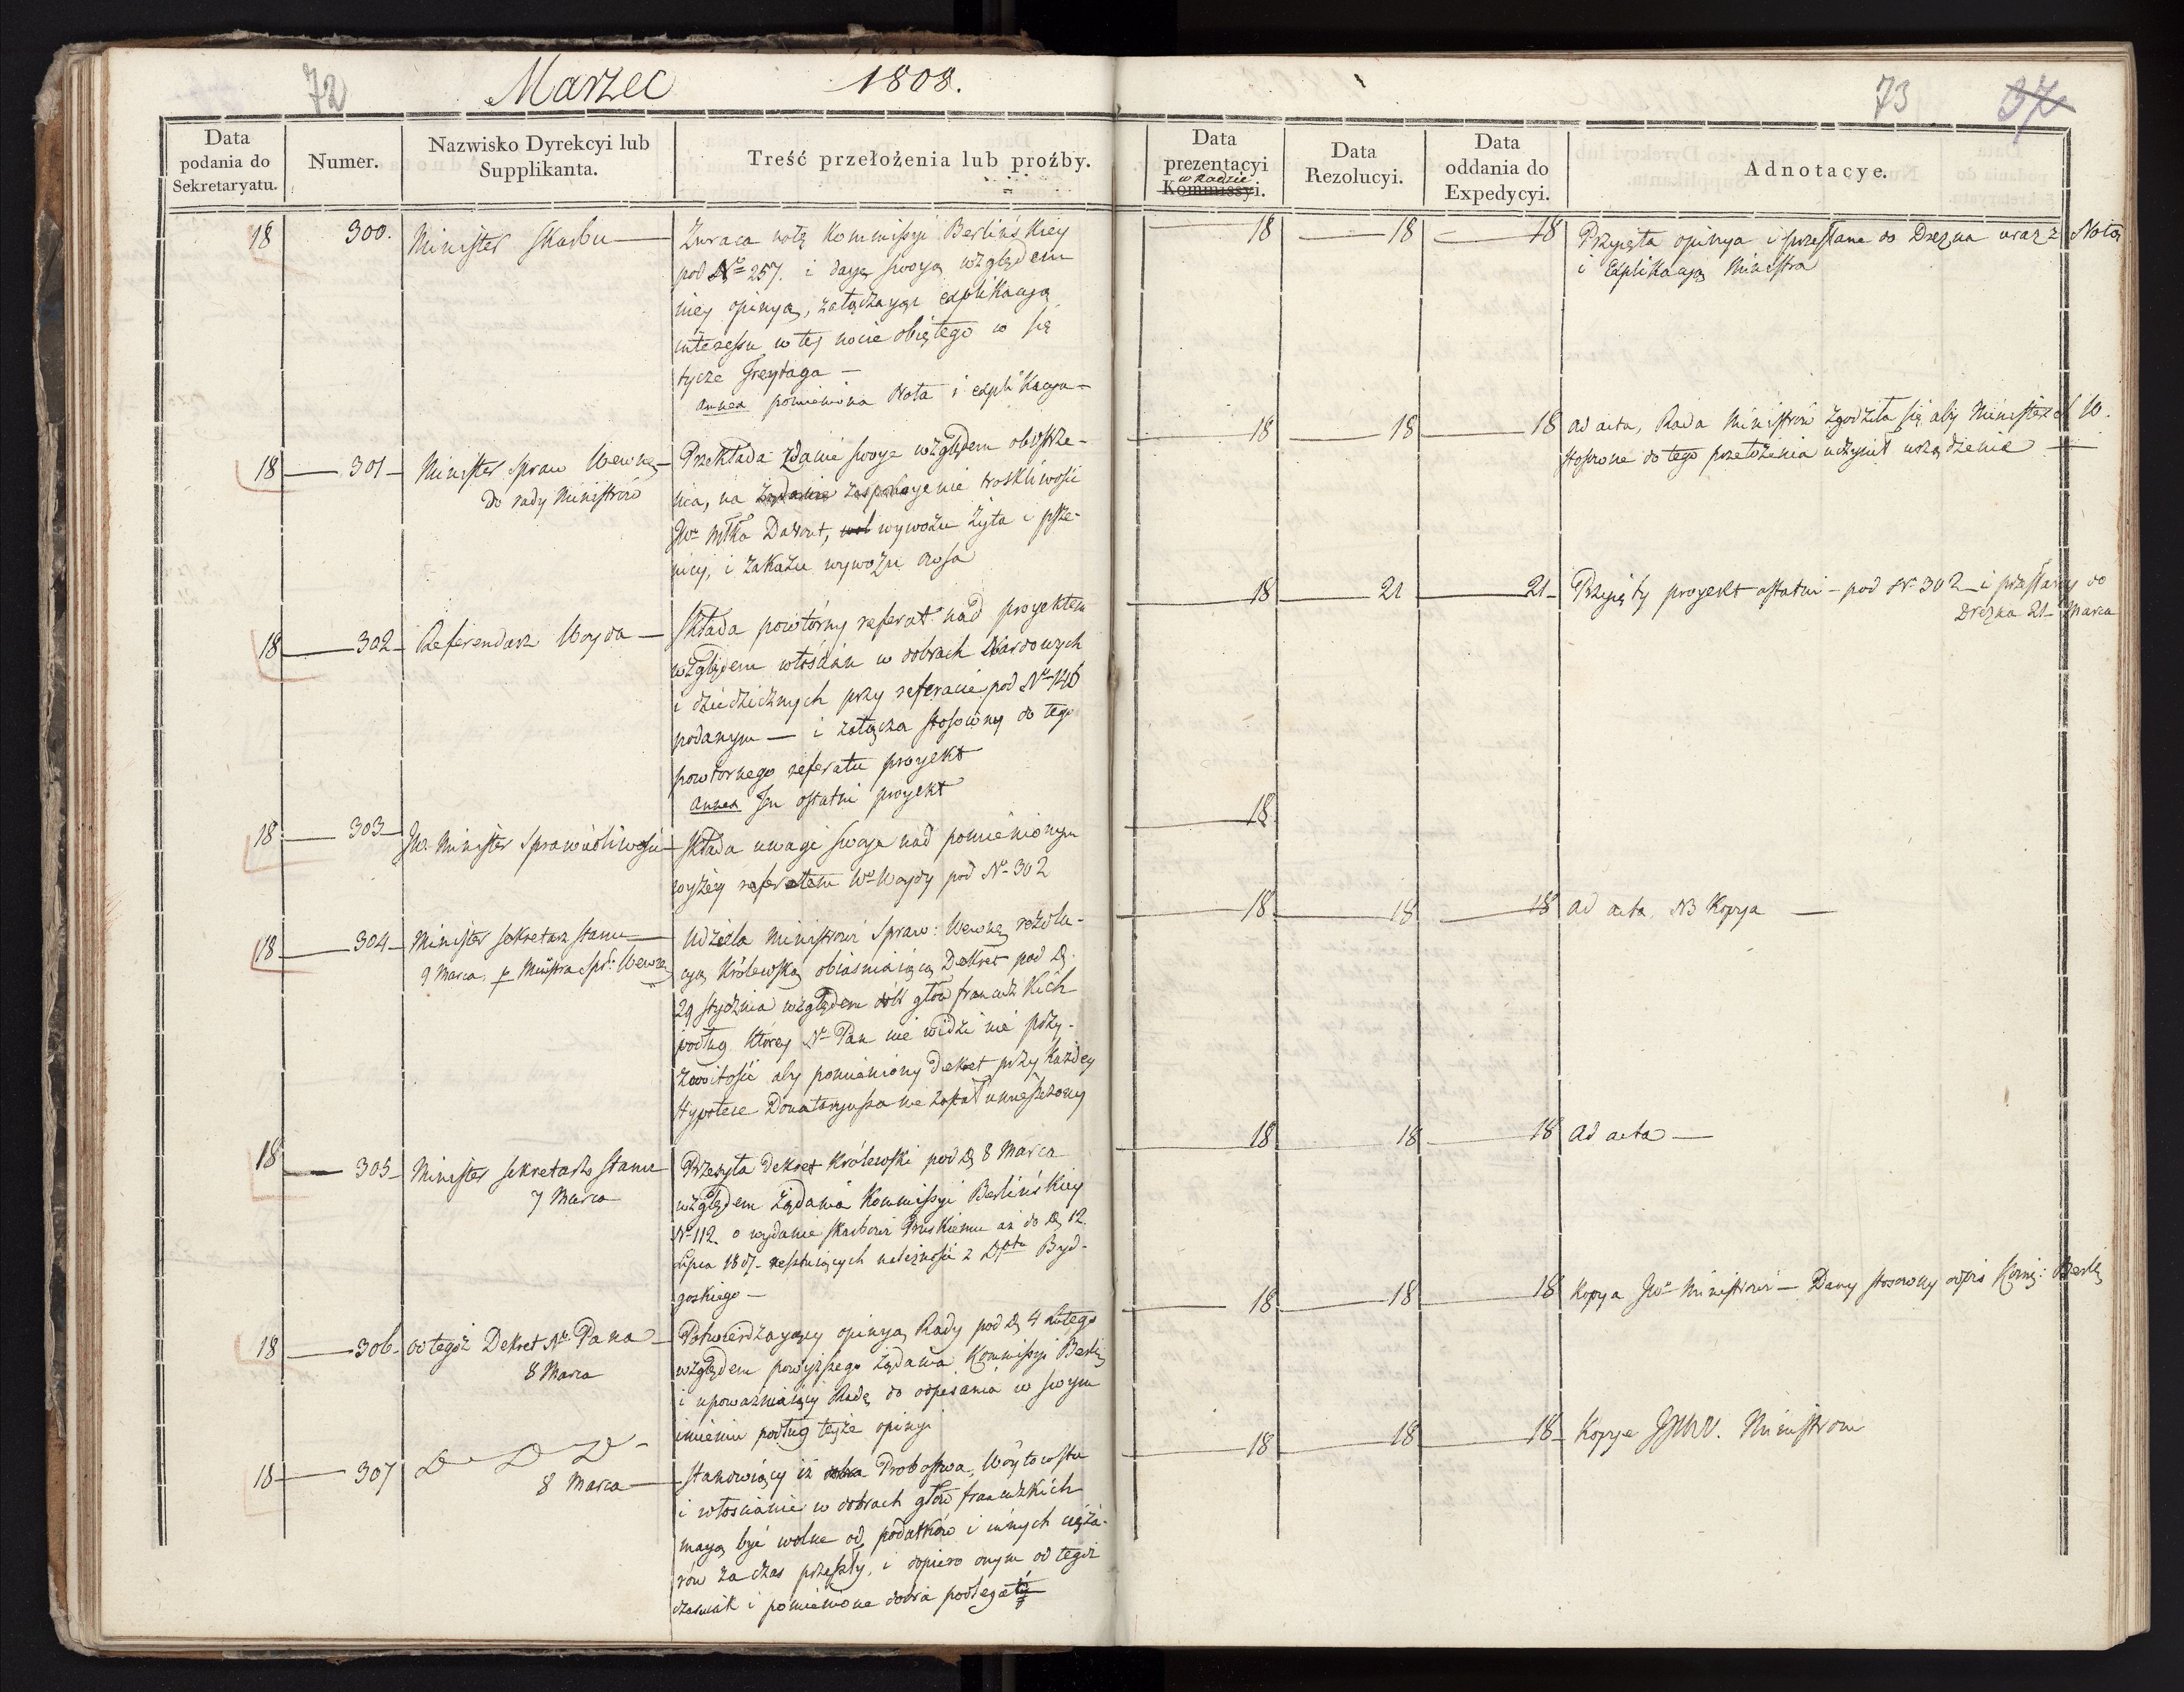 72
Marzec 1808.
73
37
Data podania do Sekretaryatu.
Numer.
Nazwisko Dyrekcyi lub Supplikanta.
Treść przełożenia lub proźby.
Data prezentacyi Kommissyi. w Radzie
Data Rezolucyi.
Data oddania do Expedycyi.
Adnotacye.
18 300. Minister Skarbu
Zwraca notę Kommissyi Berlińskiey
pod Nr 257. i daye swoyą względem
niey opinyą, załączayąc explikacyą
interessu w tey nocie obiętego w się
tycze Freytaga —
annex pomieniona Nota i explikacya —
18 18 18
Przyięta opinya i przesłana do Drezna wraz z Notą
i Explikacyą Ministra
18 301 Minister Spraw Wewnę
do rady Ministrów
Przekłada zdanie swoye względem obostrze-
nia, na żądanie zaspokoyenie troskliwości
JW Młka Davout, wywozu żyta i psze-
nicy, i zakazu wywozu owsa
18 18 18
ad acta, Rada Ministrów zgodziła się aby Minister S. W.
stosowne do tego przełożenia uczynił urządzenie
18 302 Referendarz Woyda
Składa powtórny referat nad proyektem
względem włościan w dobrach Narodowych
i dziedzicznych przy referacie pod Nr 146
podanym — i załącza stosowny do tego
powtornego referatu proyekt
annex Ten ostatni proyekt
18 21 21
Przyięty proyekt ostatni — pod Nr 302 — i przesłany do
Drezna 21 Marca
18 303 JW. Minister Sprawiedliwości
Składa uwagi swoje nad pomienionym
wyżey referatem W Woydy pod Nr 302
18
18 304 Minister Sekretarz Stanu
9 Marca. Ministra Spr: Wewnę
Udziela Ministrowi Spraw: Wewnę rezolu-
cyą Królewską obiaśniaiącą Dekret pod D.
29 stycznia względem dóbr głów francuzkich
podług którey Nr Pan nie widzi nie przy-
zwoitości aby pomieniony Dekret przy każdey
Hypotece Donataryusza nie został umieszczony
18 18 18
ad acta NB Kopya —
18 305 Minister Sekretarz Stanu
7 Marca
Przesyła Dekret Królewski pod D 8 Marca
względem żądania Kommissyi Berlińskiey
Nr 112 o wydanie skarbowi Pruskiemu aż do D 12
Lipca 1807 restuiących należności z Dptu Byd-
goskiego —
18 18 18
ad acta —
18 306 od tegoż Dekret Nr Pana
8 Marca
Potwierdzayący opinyą Rady pod D 4 Lutego
względem powyższego żądania Kommissyi Berliń
i upoważniaiący Radę do odpisania w swym
imieniu podług teyże opinyi
18 18 18
Kopya JW Ministrowi — Dany stosowny odpis Komis: Berliń
18 307 D D D
8 Marca
stanowiący iż dobra Probostwa, Wóytowstwa
i włościanie w dobrach głów francuzkich
mayą być wolne od podatków i innych cięża-
rów za czas przeszły, i dopiero onym od tegoż
czasu iak i pomienione dobra podlegać
18 18 18
Kopye JJWW. Ministrom